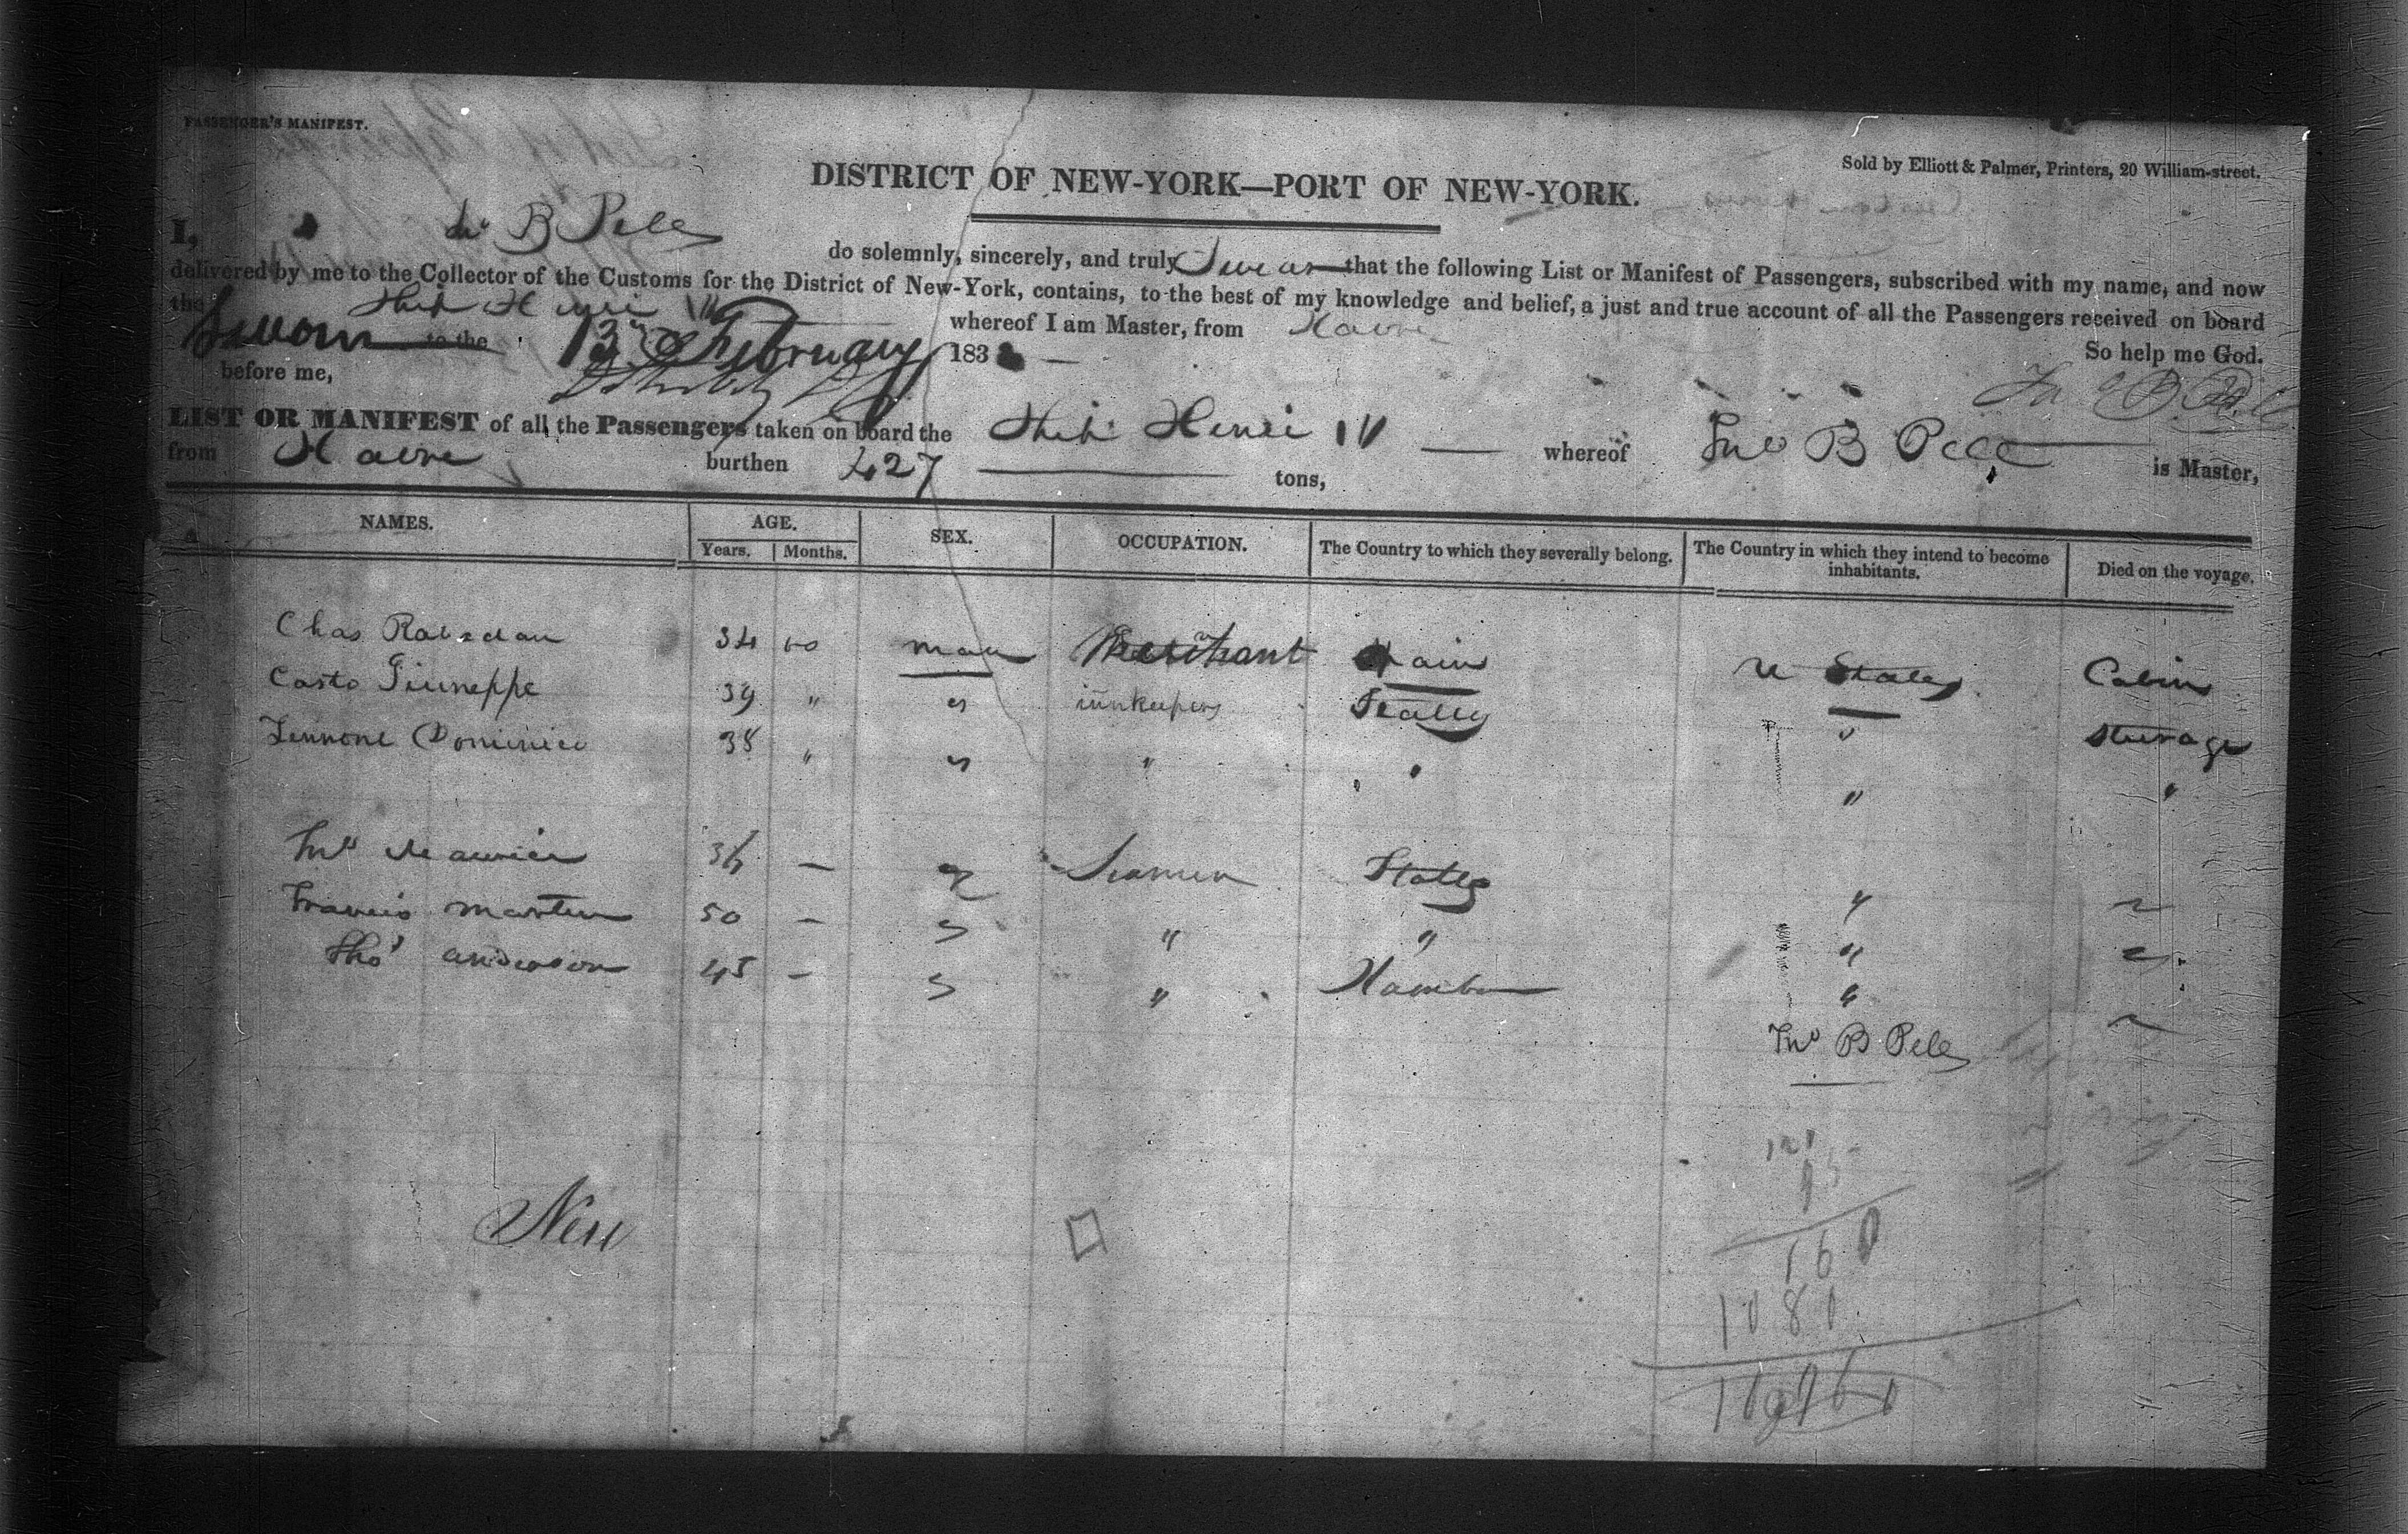 PASSENGER'S MANIFEST.
Sold by Elliott & Palmer, Printers, 20 William-street.
DISTRICT OF NEW-YORK—PORT OF NEW-YORK.
I, B Pell do solemnly, sincerely, and truly Swear that the following List or Manifest of Passengers, subscribed with my name, and now
delivered by me to the Collector of the Customs for the District of New-York, contains, to the best of my knowledge and belief, a just and true account of all the Passengers received on board
the Ship Henri IV whereof I am Master, from Havre
So help me God.
Sworn to the 13 February 183
before me,
Jno B Pell
LIST OR MANIFEST of all the Passengers taken on board the Ship Henri IV whereof Jno B Pell is Master,
from Havre burthen 427 tons,
NAMES. AGE. SEX. OCCUPATION. The Country to which they severally belong. The Country in which they intend to become inhabitants. Died on the voyage.
Years. Months.
Chas 34 man Merchant U States Cabin
Costa Giuseppe 39 " " innkeepers Itally " Sterage
Dominico 38 " " " " " "
Jno 36 — " Seamen States " "
Francis Martin 50 — " " " " "
Thos anderson 45 — " " Hambu " "
Jno B Pell
160
1080
New